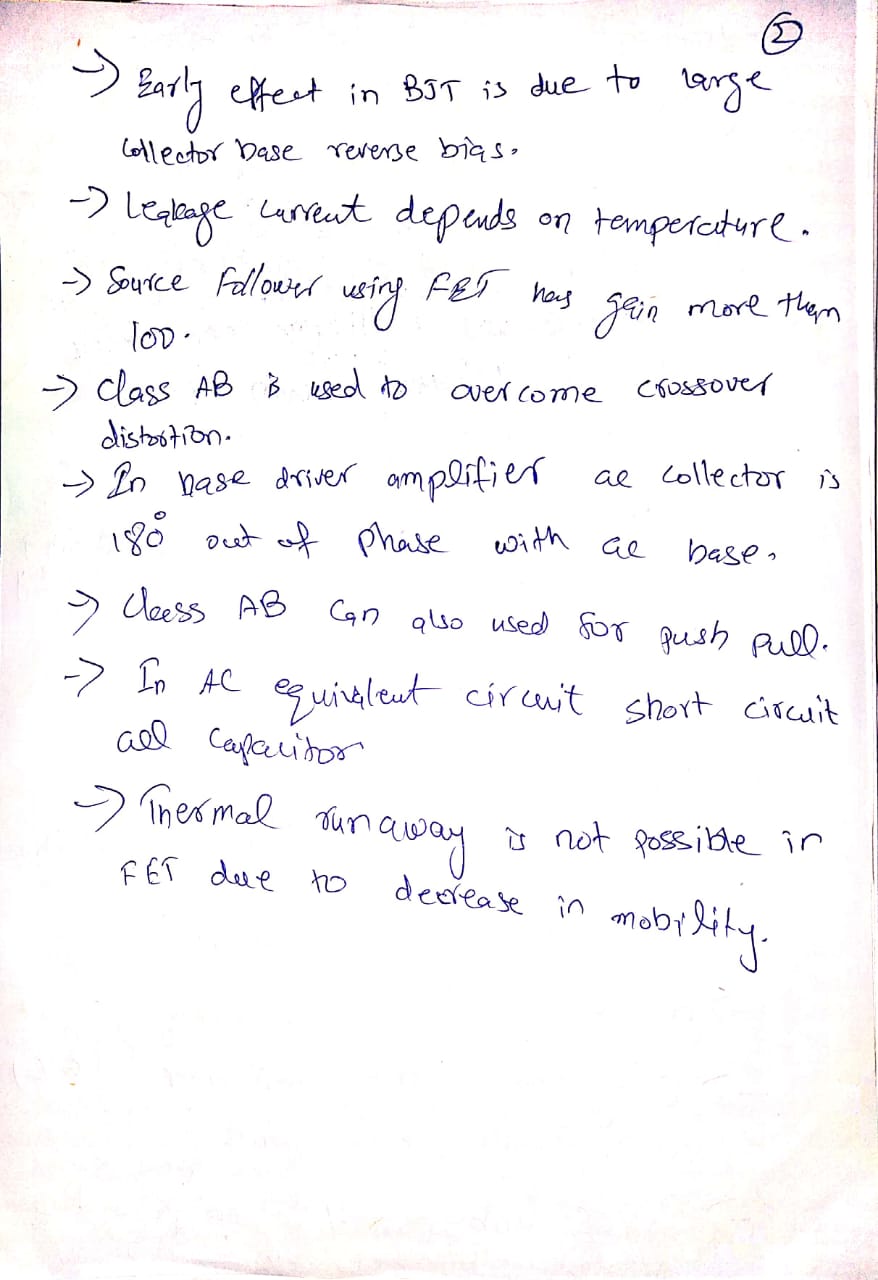 ②
→ Early effect in BJT is due to large
Collector base reverse bias.
→ Leakage current depends on temperature.
→ Source Follower using FET has gain more than
100.
→ Class AB is used to overcome crossover
distortion.
→ In base driver amplifier ac collector is
180° out of phase with ac base.
→ Class AB can also used for push pull.
→ In AC equivalent circuit short circuit
all Capacitor
→ Thermal runaway is not possible in
FET due to decrease in mobility.